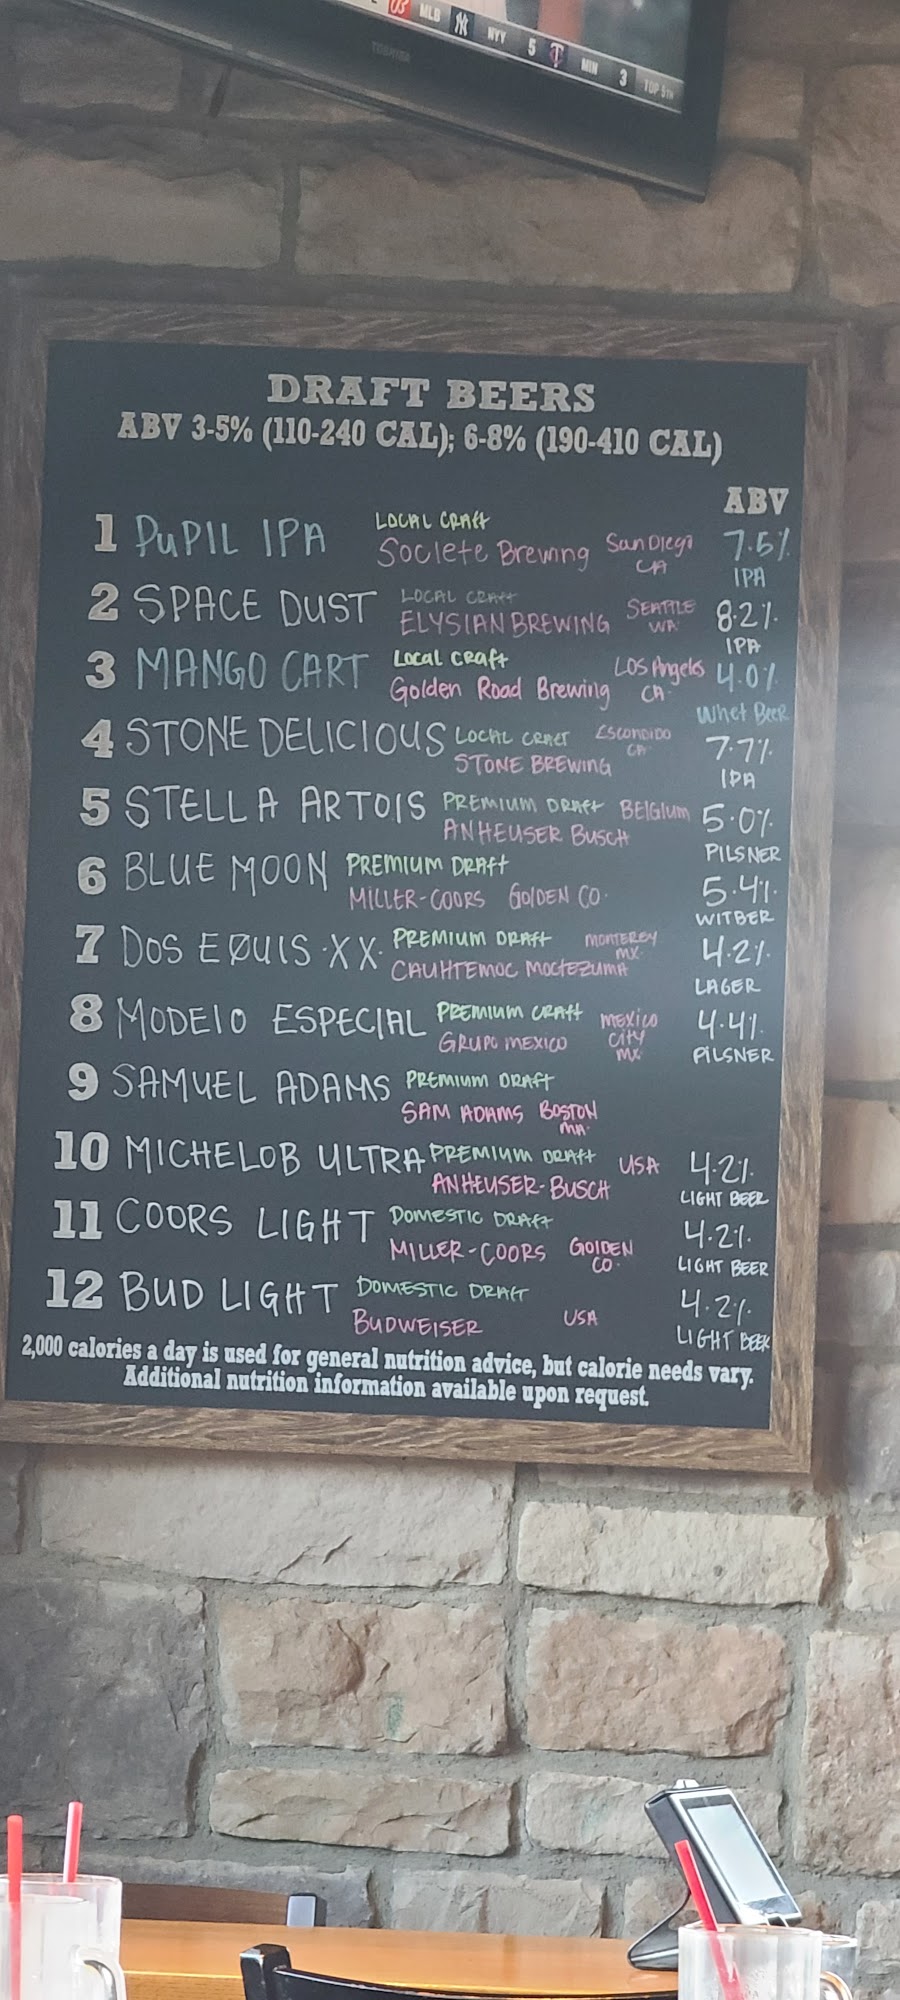 MLB NYY 5 MIN 3 TOP 5TH
TOSHIBA
DRAFT BEERS
ABV 3-5% (110-240 CAL); 6-8% (190-410 CAL)
ABV
1 PUPIL IPA LOCAL CRAft 7.5%
Societe Brewing San Diego CA IPA
2 SPACE DUST LOCAL CRAft 8.2%
ELYSIAN BREWING SEATTLE WA IPA
3 MANGO CART Local Craft 4.0%
Golden Road Brewing Los Angeles CA Whet Beer
4 STONE DELICIOUS LOCAL CRAFT ESCONDIDO CA 7.7%
STONE BREWING IPA
5 STELLA ARTOIS PREMIUM DRAft BElGIum 5.0%
ANHEUSER BUSCH PILSNER
6 BLUE MOON PREMIUM DRAft 5.4%
MILLER-COORS GOlDEN CO. WITBER
7 DOS EQUIS XX PREMIUM DRAft MONTEREY MX. 4.2%
CAUHTEMOC MOCTEZUMA LAGER
8 MODElO ESPECIAL PREMIUM CRAft MEXICO CITY MX. 4.4%
GRUPO MEXICO PILSNER
9 SAMUEL ADAMS PREMIUM DRAft
SAM ADAMS BOSTON MA.
10 MICHELOB ULTRA PREMIUM DRAft USA 4.2%
ANHEUSER-BUSCH LIGHT BEER
11 COORS LIGHT DOMESTIC DRAft 4.2%
MILLER-COORS GOlDEN CO. LIGHT BEER
12 BUD LIGHT DOMESTIC DRAft 4.2%
BUDWEISER USA LIGHT BEER
2,000 calories a day is used for general nutrition advice, but calorie needs vary.
Additional nutrition information available upon request.